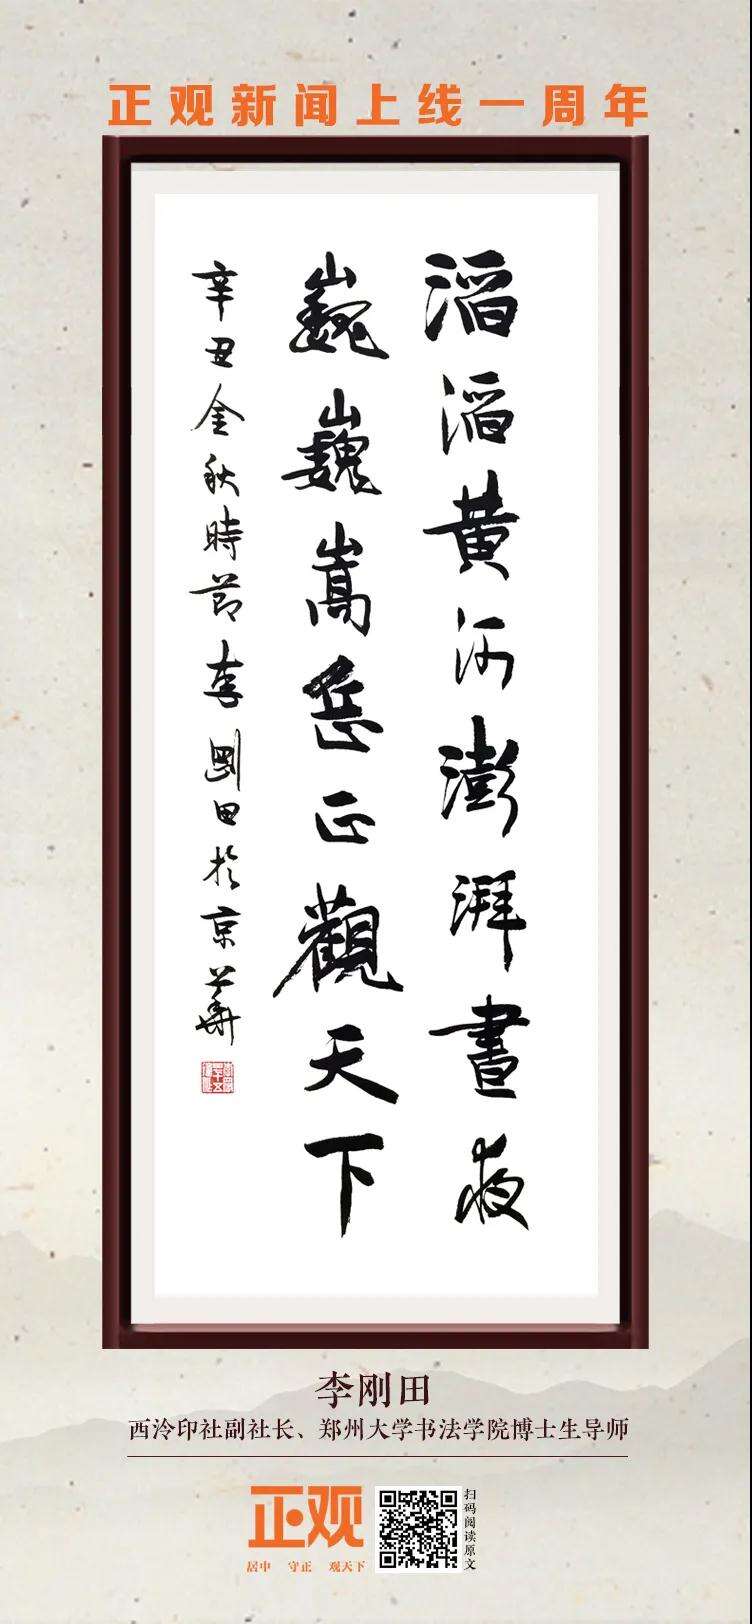 正观新闻上线一周年
滔滔黄河澎湃晝夜
巍巍嵩岳正觀天下
辛丑金秋時節李剛田於京華
李刚田
西泠印社副社长、郑州大学书法学院博士生导师
正观
居中 守正 观天下
扫码阅读原文